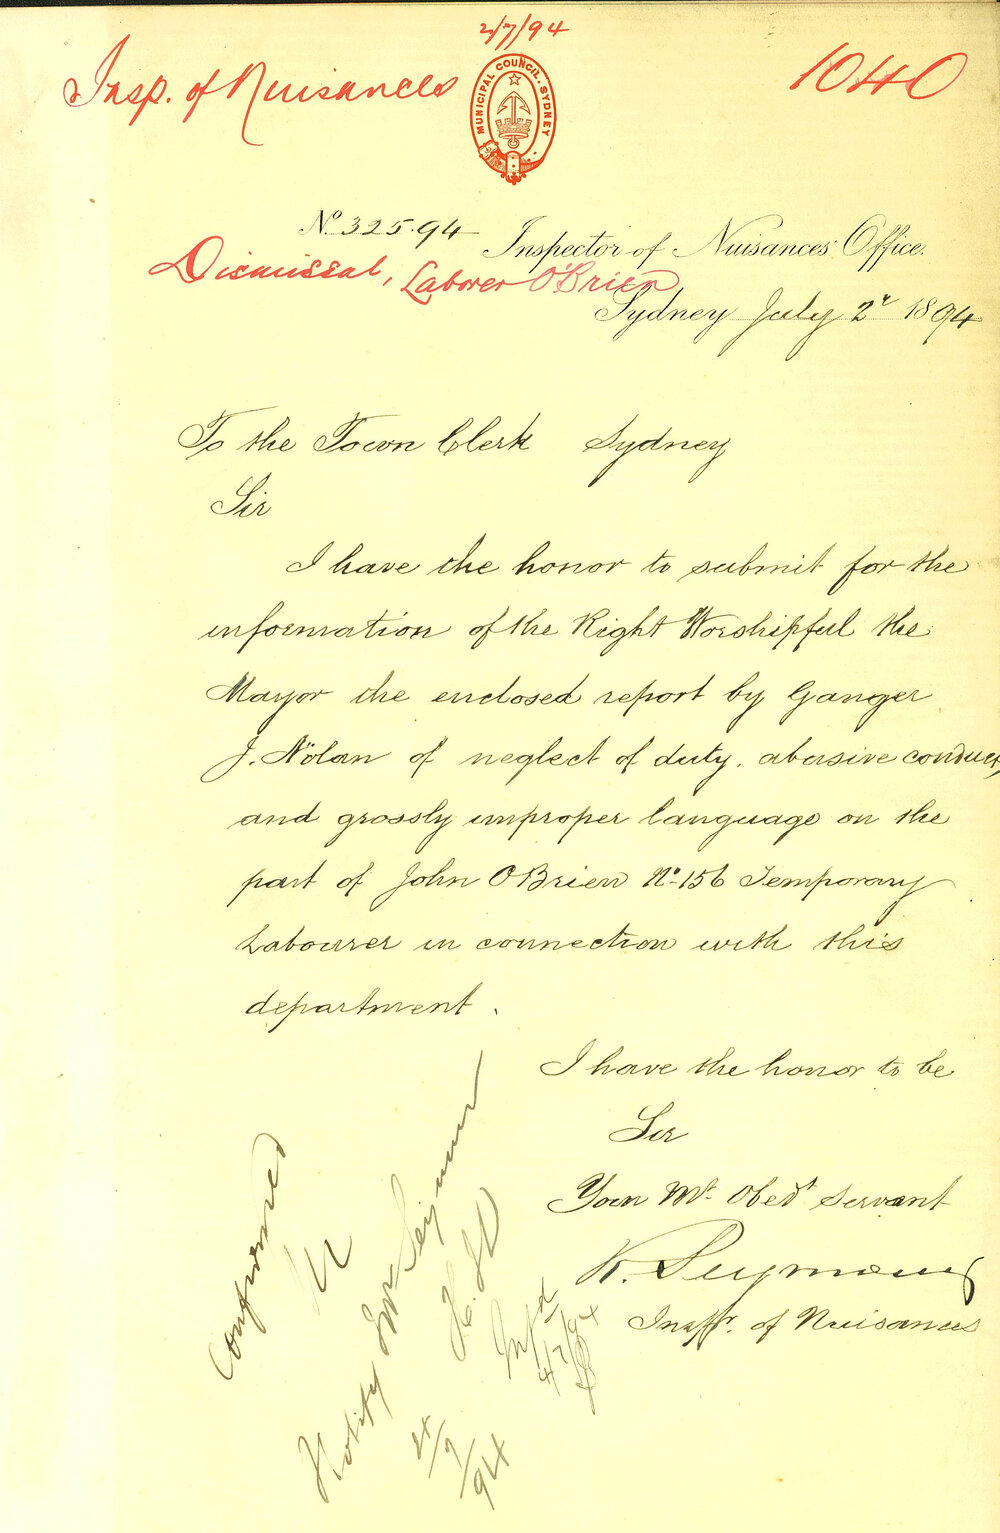 2/7/94
Insp. of Nuisances
1040
MUNICIPAL COUNCIL. SYDNEY
No. 325.94
Inspector of Nuisances' Office.
Dismissal, Laborer O'Brien
Sydney July 2r 1894
To the Town Clerk Sydney
Sir
I have the honor to submit for the
information of the Right Worshipful the
Mayor the enclosed report by Ganger
J. Nolan of neglect of duty, abusive conduct,
and grossly improper language on the
part of John O'Brien No. 156 Temporary
Labourer in connection with this
department.
I have the honor to be
Sir
Your Mt. Obedt Servant
R. Seymour
Inspr. of Nuisances
Confirmed
Notify Mr Seymour
4/7/94
Infd
4/7/94